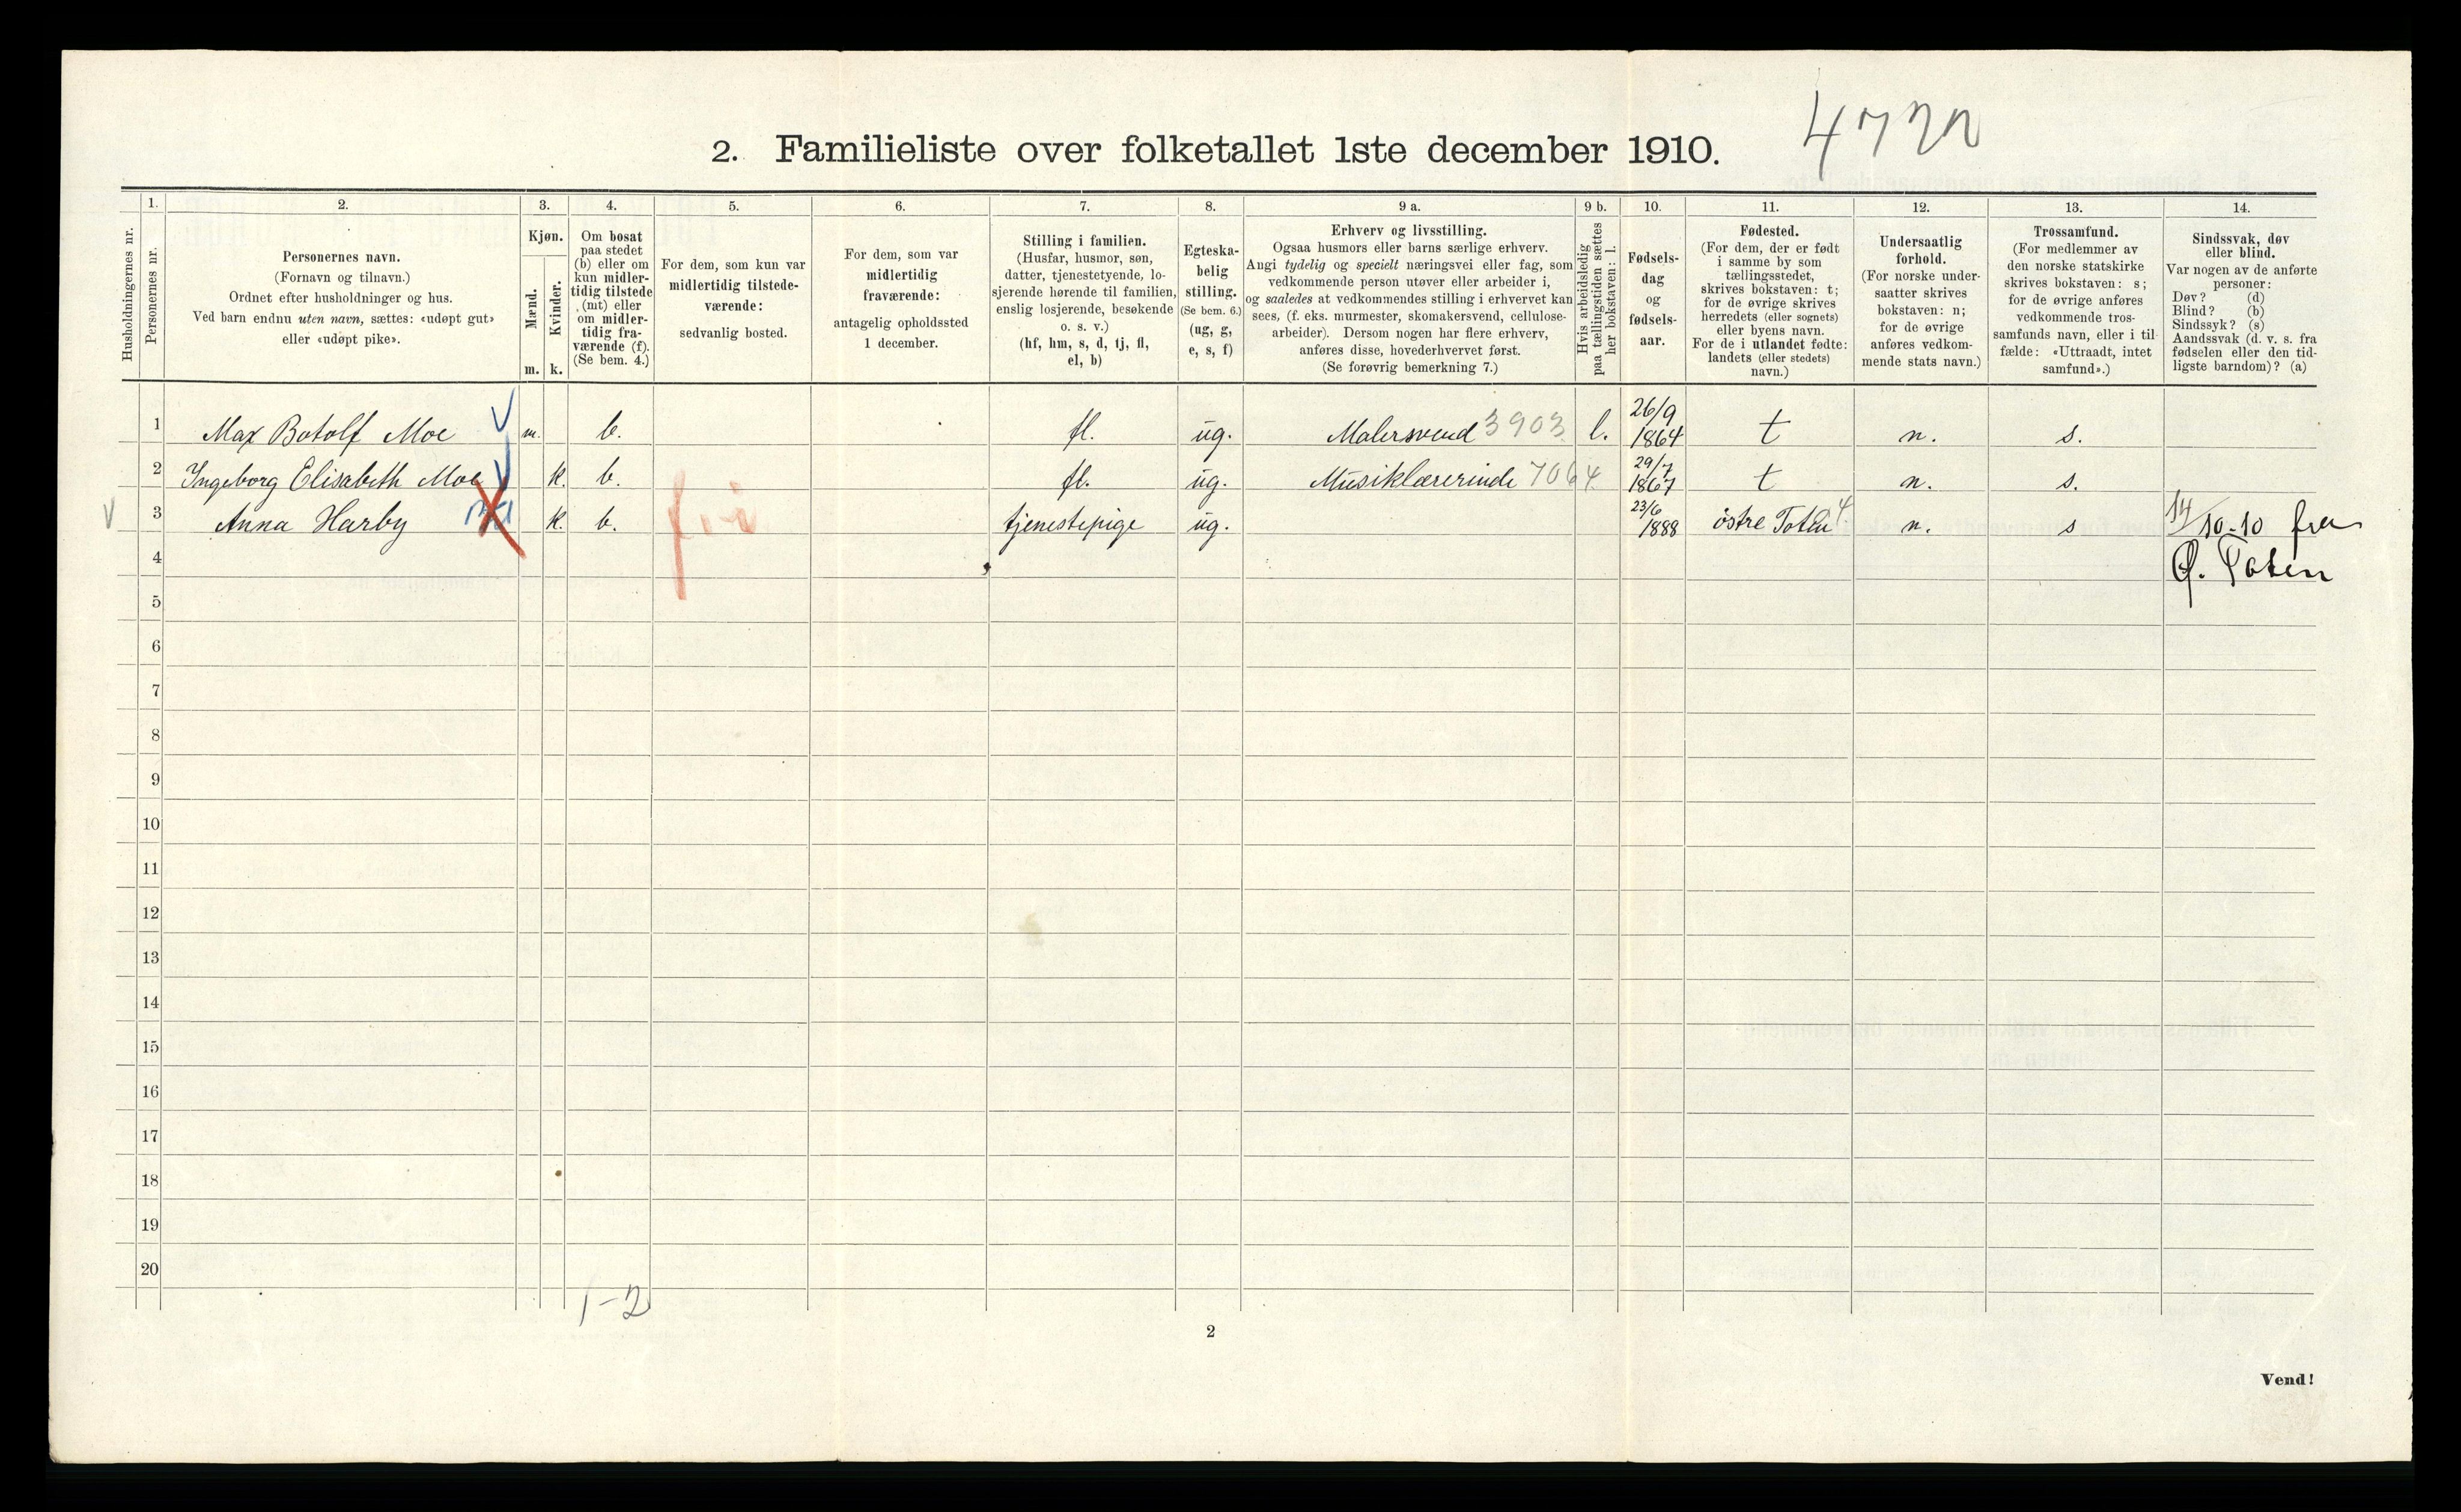 4722
2. Familieliste over folketallet 1ste december 1910.
Husholdningernes nr.
1.
Personernes nr.
2.
Personernes navn.
(Fornavn og tilnavn.)
Ordnet efter husholdninger og hus.
Ved barn endnu uten navn, sættes: «udøpt gut»
eller «udøpt pike».
3.
Kjøn.
Mænd.
m.
Kvinder.
k.
4.
Om bosat
paa stedet
(b) eller om
kun midler-
tidig tilstede
(mt) eller
om midler-
tidig fra-
værende (f).
(Se bem. 4.)
5.
For dem, som kun var
midlertidig tilstede-
værende:
sedvanlig bosted.
6.
For dem, som var
midlertidig
fraværende:
antagelig opholdssted
1 december.
7.
Stilling i familien.
(Husfar, husmor, søn,
datter, tjenestetyende, lo-
sjerende hørende til familien,
enslig losjerende, besøkende
o. s. v.)
(hf, hm, s, d, tj, fl,
el, b)
8.
Egteska-
belig
stilling.
(Se bem. 6.)
(ug, g,
e, s, f)
9 a.
Erhverv og livsstilling.
Ogsaa husmors eller barns særlige erhverv.
Angi tydelig og specielt næringsvei eller fag, som
vedkommende person utøver eller arbeider i,
og saaledes at vedkommendes stilling i erhvervet kan
sees, (f. eks. murmester, skomakersvend, cellulose-
arbeider). Dersom nogen har flere erhverv,
anføres disse, hovederhvervet først.
(Se forøvrig bemerkning 7.)
9 b.
Hvis arbeidsledig
paa tællingstiden sættes
her bokstaven: l.
10.
Fødsels-
dag
og
fødsels-
aar.
11.
Fødested.
(For dem, der er født
i samme by som
tællingsstedet,
skrives bokstaven: t;
for de øvrige skrives
herredets (eller sognets)
eller byens navn.
For de i utlandet fødte:
landets (eller stedets)
navn.)
12.
Undersaatlig
forhold.
(For norske under-
saatter skrives
bokstaven: n;
for de øvrige
anføres vedkom-
mende stats navn.)
13.
Trossamfund.
(For medlemmer av
den norske statskirke
skrives bokstaven: s;
for de øvrige anføres
vedkommende tros-
samfunds navn, eller i til-
fælde: «Uttraadt, intet
samfund».)
14.
Sindssvak, døv
eller blind.
Var nogen av de anførte
personer:
Døv? (d)
Blind? (b)
Sindssyk? (s)
Aandssvak (d. v. s. fra
fødselen eller den tid-
ligste barndom)? (a)
1 Max Botolf Moe m. b. fl. ug. Malersvend 3903 l. 26/9 1864 t n. s.
2 Ingeborg Elisabeth Moe k. b. fl. ug. Musiklærerinde 7064 29/7 1867 t n. s.
3 Anna Harby k. b. tjenestepige ug. 23/6 1888 østre Toten 4 n. s 14/10-10 fra
4 Ø. Toten
5
6
7
8
9
10
11
12
13
14
15
16
17
18
19
20
1-2
2
Vend!